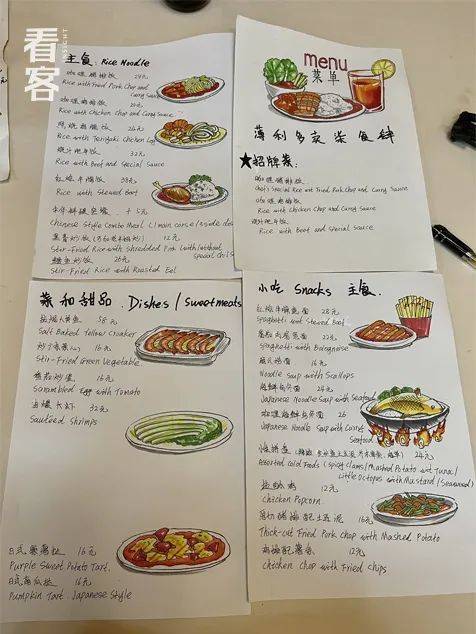 看客
INSIGHT
主食 Rice Noodle
咖喱猪排饭 29元
Rice with Fried Pork Chop and
Curry Sauce
咖喱鸡排饭
Rice with Chicken Chop and Curry Sauce
照烧鸡腿饭 26元
Rice with Teriyaki Chicken Leg
32元
Rice with Beef and Special Sauce
红烩牛腩饭 38元
Rice with Stewed Beef
5元
Chinese Style Combo Meal (1 main corse/2side de
12元
Stir-Fried Rice with Shredded Pork (with/without
special chili
鳗鱼炒饭 26元
Stir-Fried Rice with Roasted Eel
menu
菜单
薄利多
★招牌菜:
咖喱猪排饭
Chef's Special Rice with Fried Pork Chop and Curry Sauce
咖喱鸡排饭
Rice with Chicken Chop and Curry Sauce
Rice with Beef and Special Sauce
菜和甜品 Dishes/sweetmeats
盐焗小黄鱼 58元
Salt Baked Yellow Croaker
16元
Stir-Fried Green Vegetable
番茄炒蛋 16元
Scrambled Egg with Tomato
油爆大虾 32元
Sauteed Shrimps
日式紫薯挞 16元
Purple Sweet Potato Tart.
日式南瓜挞 16元
Pumpkin Tart Japanese Style
小吃 Snacks 主食
28元
Spaghetti with Stewed Beef
22元
Spaghetti with Bolognaise
16元
Noodle Soup with Scallops
海鲜乌冬面 24元
Japanese Noodle Soup with Seafood
咖喱海鲜乌冬面 26
Japanese Noodle Soup with Curry
Seafood
24元
Assorted Cold Foods (Spicy Clams/Mashed Potato wit Tuna/
Little Octopus with Mustard/Seaweed)
12元
Chicken Popcorn
厚切猪排配土豆泥 16元
Thick-cut Fried Pork Chop with Mashed Potato
鸡排配薯条 12元
Chicken Chop with Fried Chips